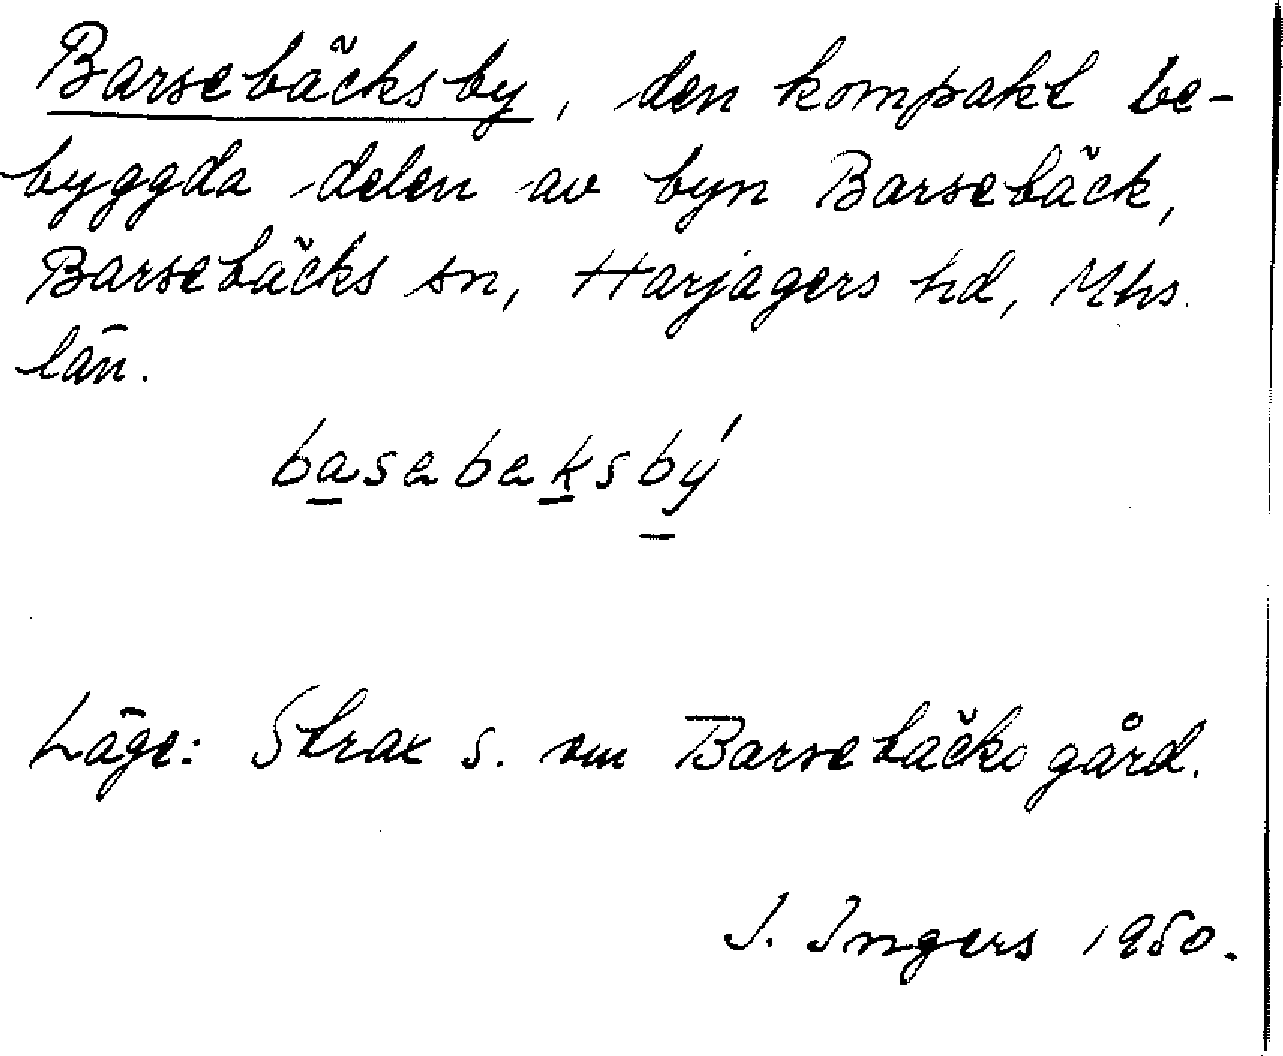 Barsebäcksby, den kompakt be-
byggda delen av byn Barsebäck,
Barsebäcks sn, Harjagers hd, Mhs.
län.
basabaksbý
Läge: Strax s. om Barsebäcks gård.
J. Ingers 1950.